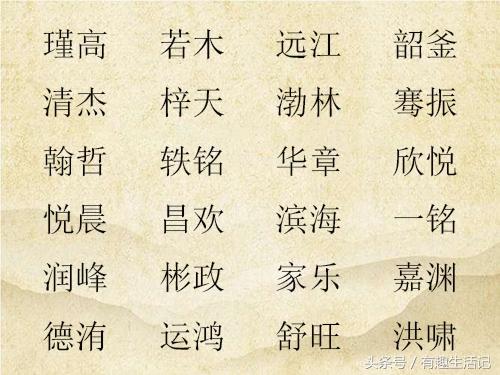 瑾高 若木 远江 韶釜
清杰 梓天 渤林 骞振
翰哲 轶铭 华章 欣悦
悦晨 昌欢 滨海 一铭
润峰 彬政 家乐 嘉渊
德洧 运鸿 舒旺 洪啸
头条号 / 有趣生活记